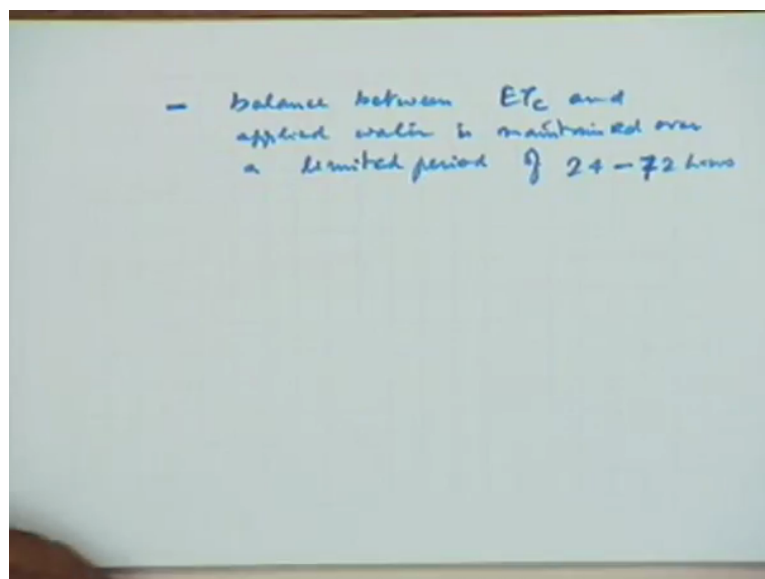 – balance between ETc and
applied water is maintained over
a limited period of 24 – 72 hours